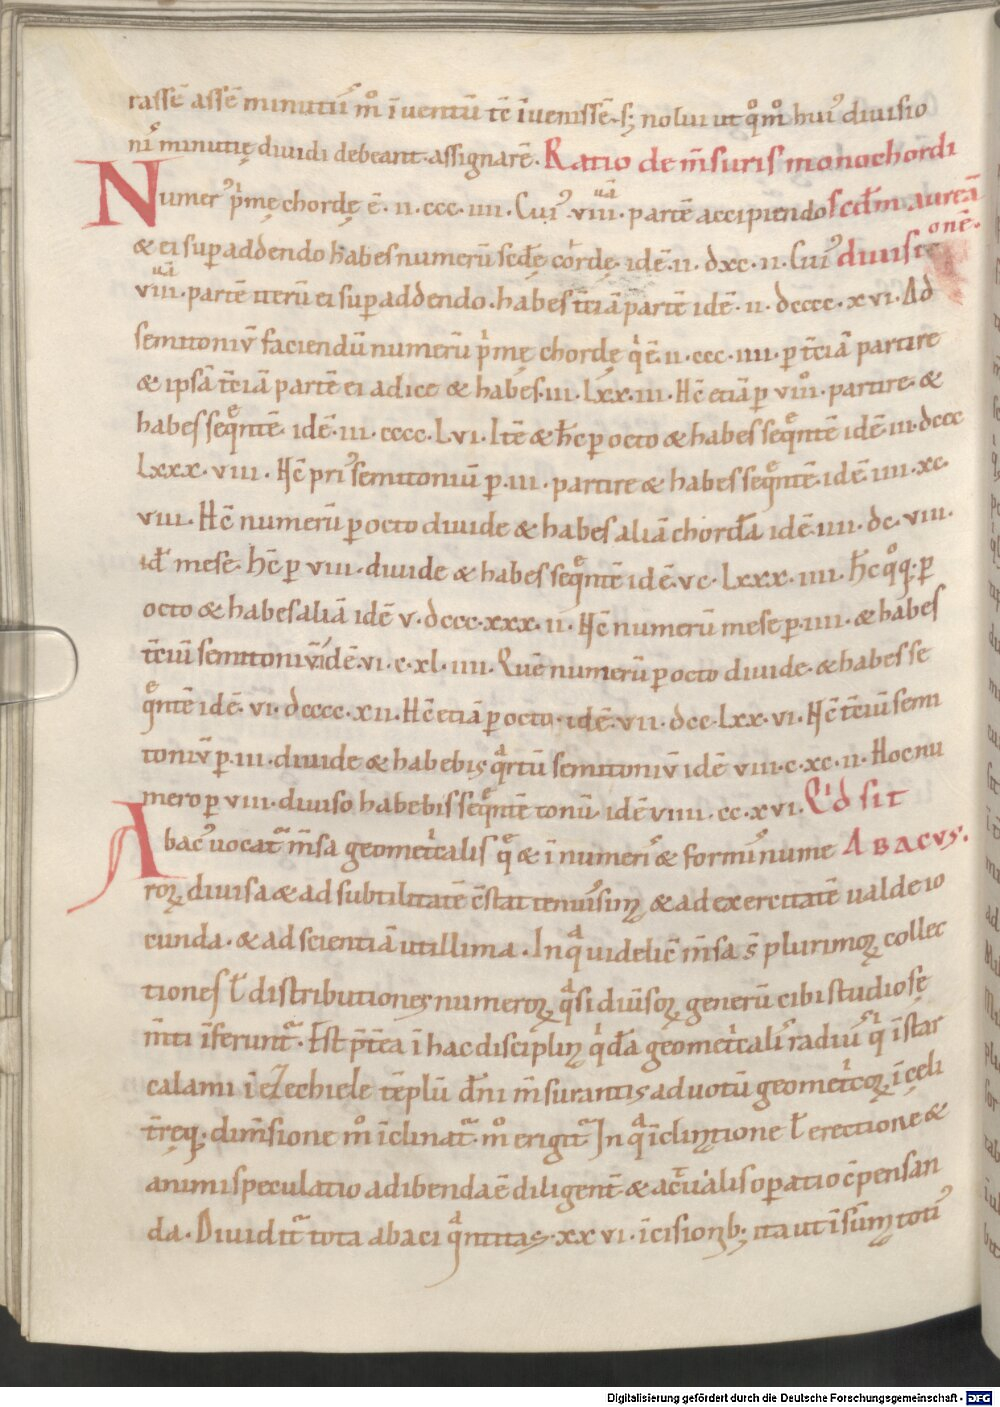 rassē assē minutiū m̊ īuentū tē īuenissē s; nolui ut q̊m̊ hui᷒ diuisio
ni᷒ minutię diuidi debeant assignarē. Ratio de m̄suris monochordi
Numer᷒ p̍mę chordę ē. II. CCC. IIII. Cui᷒ .VIIII. partē accipiendo scd̄m aureā
& ei sup addendo habes numerū scdę cordę. idē. II. DXC. II. Cui᷒ diuisi onē.
VIIII. partē iterū ei sup addendo. habes t̄ciā partē idē. II. DCCCC. XVI. Ad
semitoniū faciendū numerū p̍mę chordę q̍ ē II. CCC. IIII. p t̄ciā partire
& ipsā t̄ciā partē ei adice & habes. III. LXX. III. Hc̄ etiā p VIII. partire. &
habes seqͤntē. idē. III. CCCC. LVI. Itē & hc̄ p octo & habes seqͤntē idē III. DCCC
LXXX. VIII. Hc̄ pri᷒ semitoniū p. III. partire & habes seqͤntē. idē. IIII. XC.
VIII. Hc̄ numerū p octo diuide & habes aliā chordā idē. IIII. DC. VIII.
id̄ mese. Hc̄ p VIII. diuide & habes seqͤntē idē. V C. LXXX. IIII. Hc̄ q̊q; p
octo & habes aliā idē V. DCCC. XXX. II. Hc̄ numerū mese p. IIII. & habes
t̄ciū semitoniū idē. VI. C. XL. IIII. Quē numerū p octo diuide. & habes se
qͤntē idē. VI. DCCCC. XII. Hc̄ etiā p octo. idē. VII. DCC. LXX. VI. Hc̄ t̄ciū semi
toniū p. III. diuide & habebis qͣrtū semitoniū idē VIII. C. XC. II. Hoc nu
mero p VIII. diuiso habebis seqͤntē tonū. idē VIIII. CC. XVI. Qͥd sit
Abac᷒ uocatͣ m̄sa geomet̍calis qͤ & ī numeri᷒ & formi᷒ nume ABACVS.
roꝝ diuisa & ad subtilitatē c̄stat tenuis᷒simę & ad exercitatē ualde io
cunda. & ad scientiā utillima. In qͣ uidelic̄ m̄sa s̄ plurimoꝝ collec
tiones ł distributiones numeroꝝ qͣsi diūsoꝝ generū cibi studiose
m̄ti īferuntͣ. Est p̄t̄ea ī hac disciplinę q̍dā geomet̍cali᷒ radiu᷒ q̍ īstar
calami ī eZechiele tēplū dn̄i m̄surantis ad uotū geomet̍coꝝ ī cęli
t̄ręq; dim̄sione m̊ īclinatͣ. m̊ erigitͣ In qͣ īclinatione ł erectione &
animi speculatio adibenda ē diligent̄ & actualis opatio c̄pensan
da. Diuiditͣ tota abaci qͣntitas. XX VI. īcisionib; ita ut ī sūma toti᷒